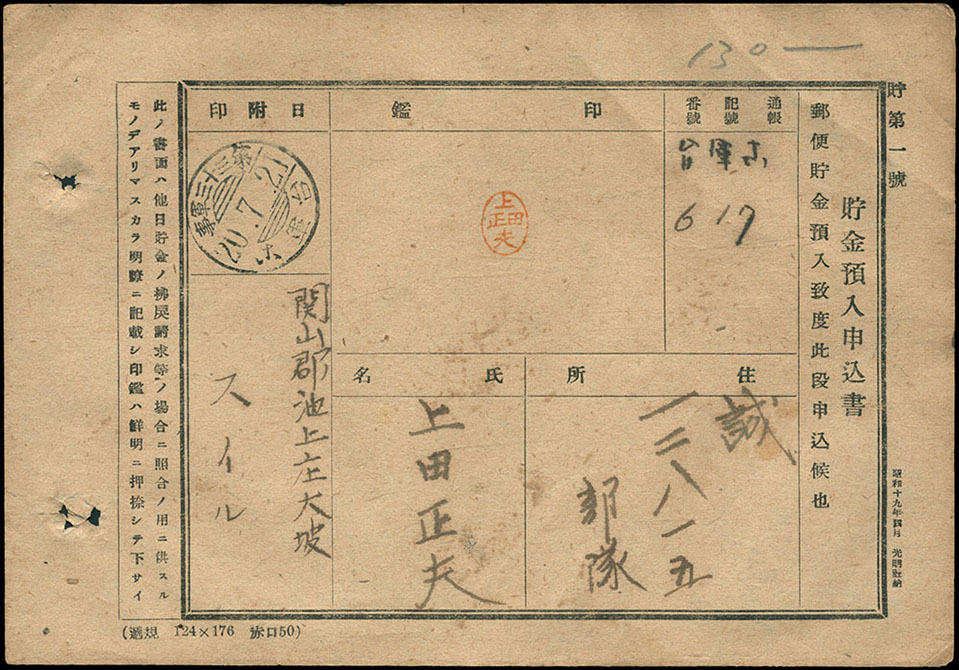 130 ―
貯第一號
貯金預入申込書
郵便貯金預入致度此段申込候也
昭和十九年四月
通帳記號番號
台軍ホ
617
印鑑
上田正夫
日附印
台軍ホ
20.7.21
住所
誠
一二八一五
部隊
氏名
上田正夫
関山郡池上庄大坡
スイル
此ノ書面ハ他日貯金ノ拂戻請求等ノ場合ニ照合ノ用ニ供スル
モノデアリマスカラ明瞭ニ記載シ印鑑ハ鮮明ニ押捺シテ下サイ
124×176
50)